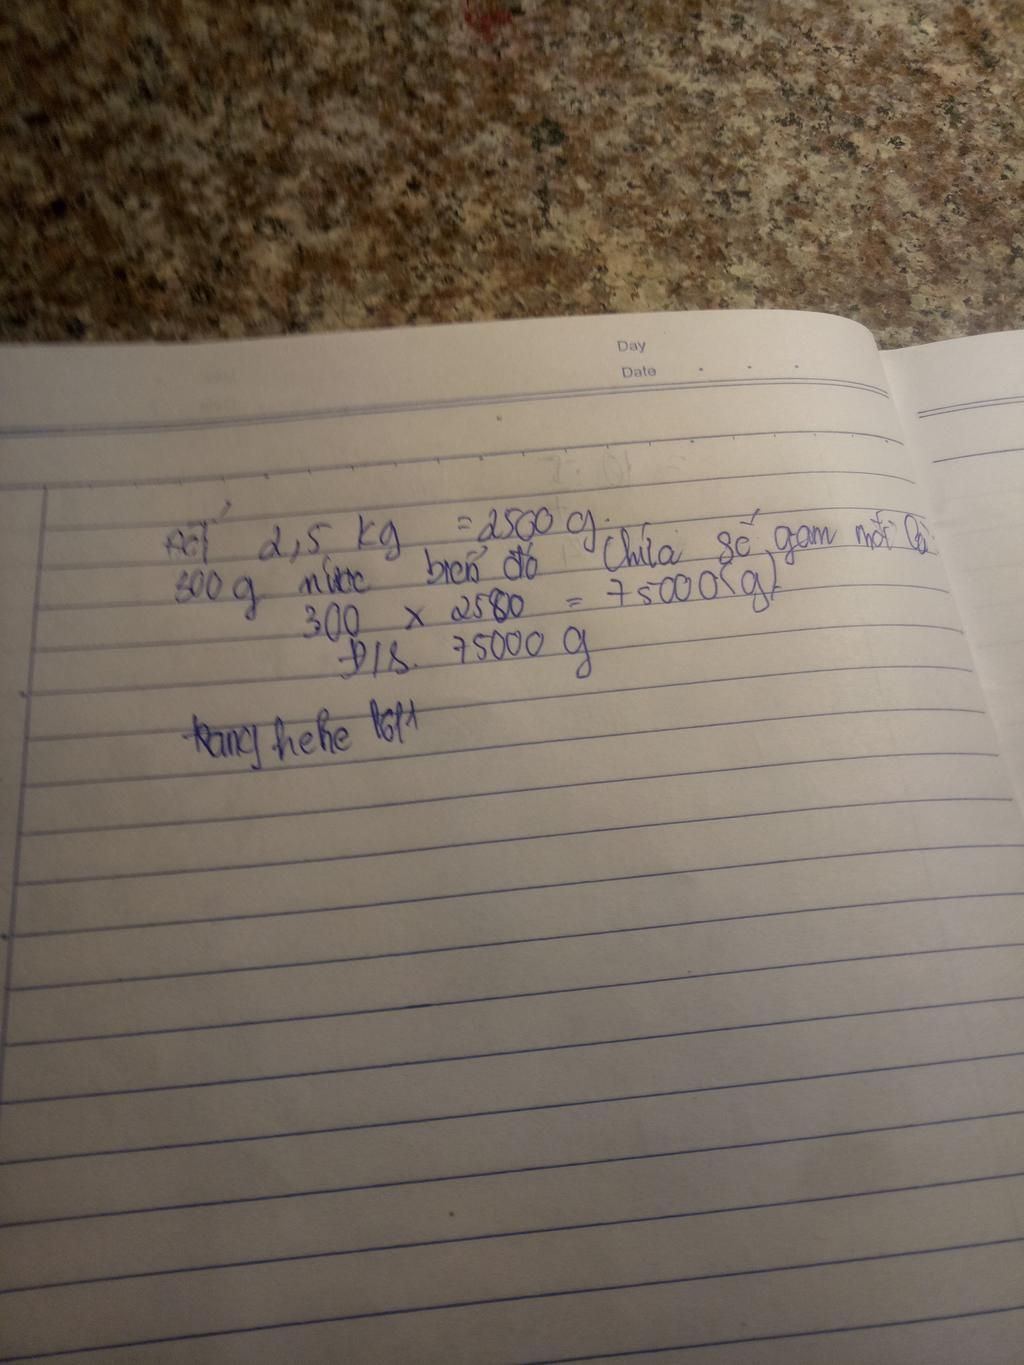 Day
Date
2,5 kg = 2500 g.
300 g nước biển đó chứa số gam mối là
300 x 2580 = 75000 (g)
Đ/S. 75000 g
hehe